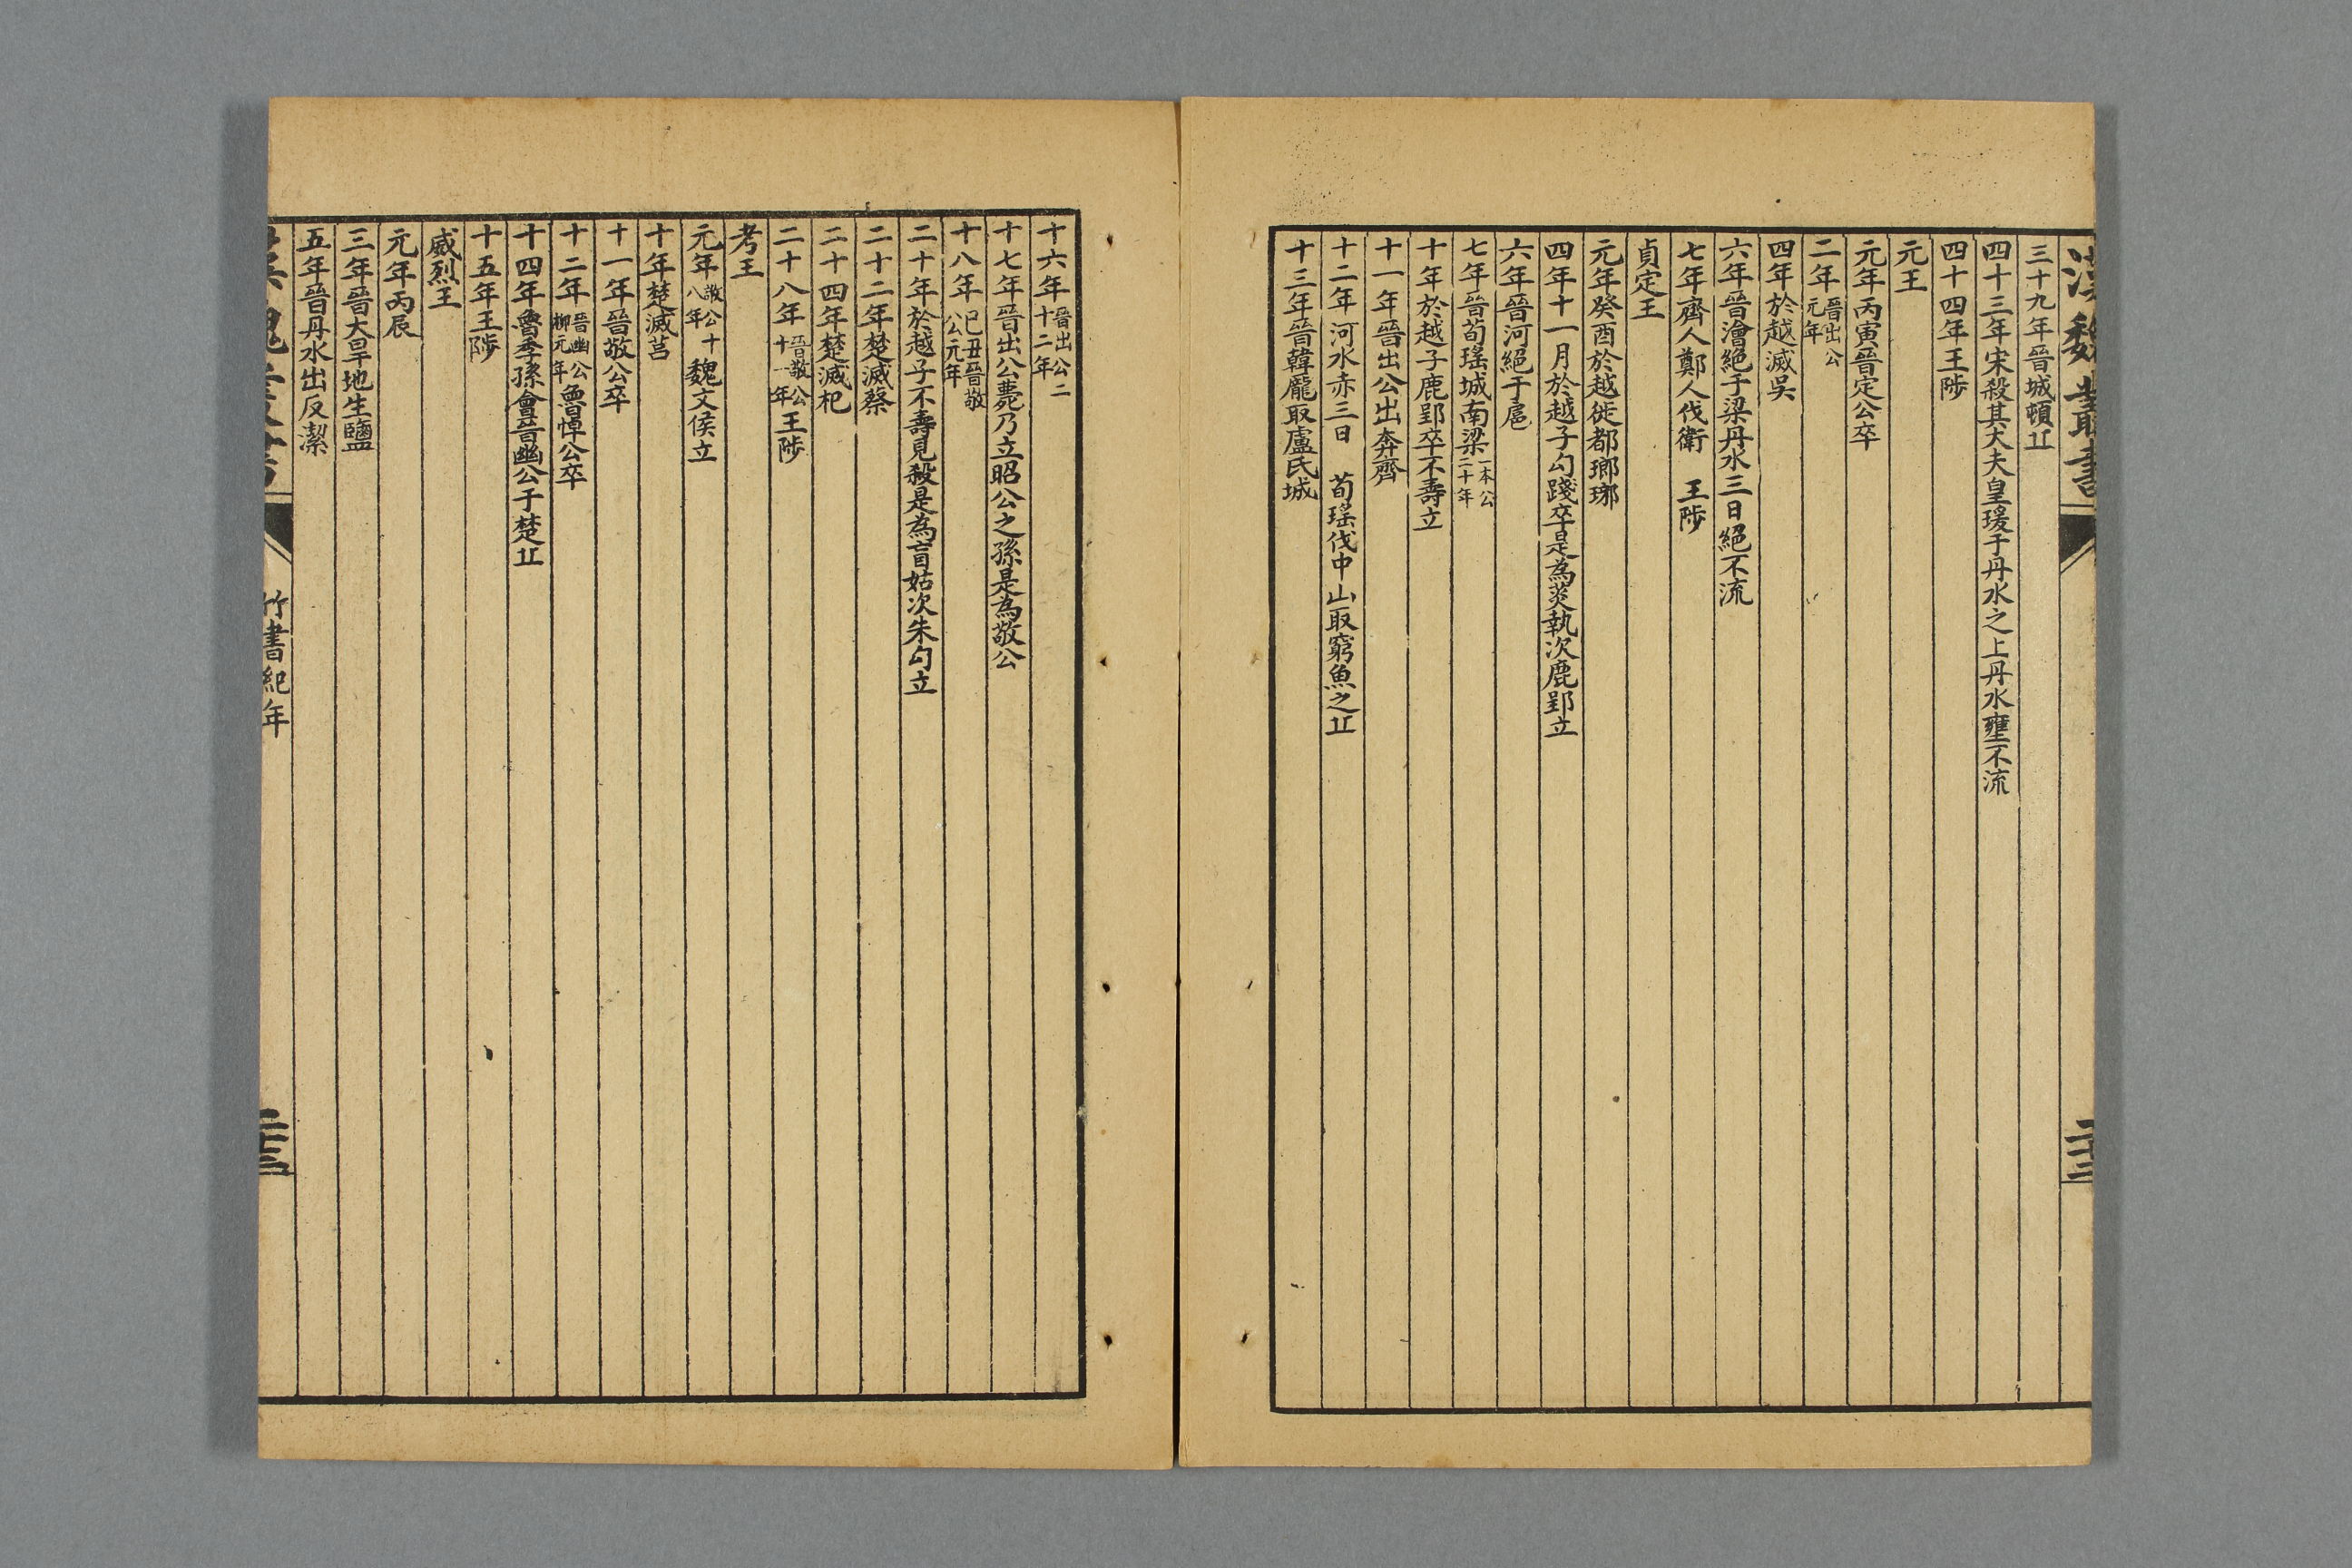 漢魏叢書
二十三
三十九年晉城頓丘
四十三年宋殺其大夫皇瑗于丹水之上丹水壅不流
四十四年王陟
元王
元年丙寅晉定公卒
二年晉出公元年
四年於越滅吳
六年晉澮絕于梁丹水三日絕不流
七年齊人鄭人伐衛 王陟
貞定王
元年癸酉於越徙都瑯琊
四年十一月於越子勾踐卒是為菼執次鹿郢立
六年晉河絕于扈
七年晉荀瑤城南梁一本公二十年
十年於越子鹿郢卒不壽立
十一年晉出公出奔齊
十二年河水赤三日 荀瑤伐中山取窮魚之丘
十三年晉韓龐取盧氏城
十六年晉出公二十二年
十七年晉出公薨乃立昭公之孫是為敬公
十八年巳丑晉敬公元年
二十年於越子不壽見殺是為盲姑次朱勾立
二十二年楚滅蔡
二十四年楚滅杞
二十八年晉敬公十一年王陟
考王
元年敬公十八年魏文侯立
十年楚滅莒
十一年晉敬公卒
十二年晉幽公柳元年魯悼公卒
十四年魯季孫會晉幽公于楚丘
十五年王陟
威烈王
元年丙辰
三年晉大旱地生鹽
五年晉丹水出反潔
漢魏叢書
竹書紀年
二十三